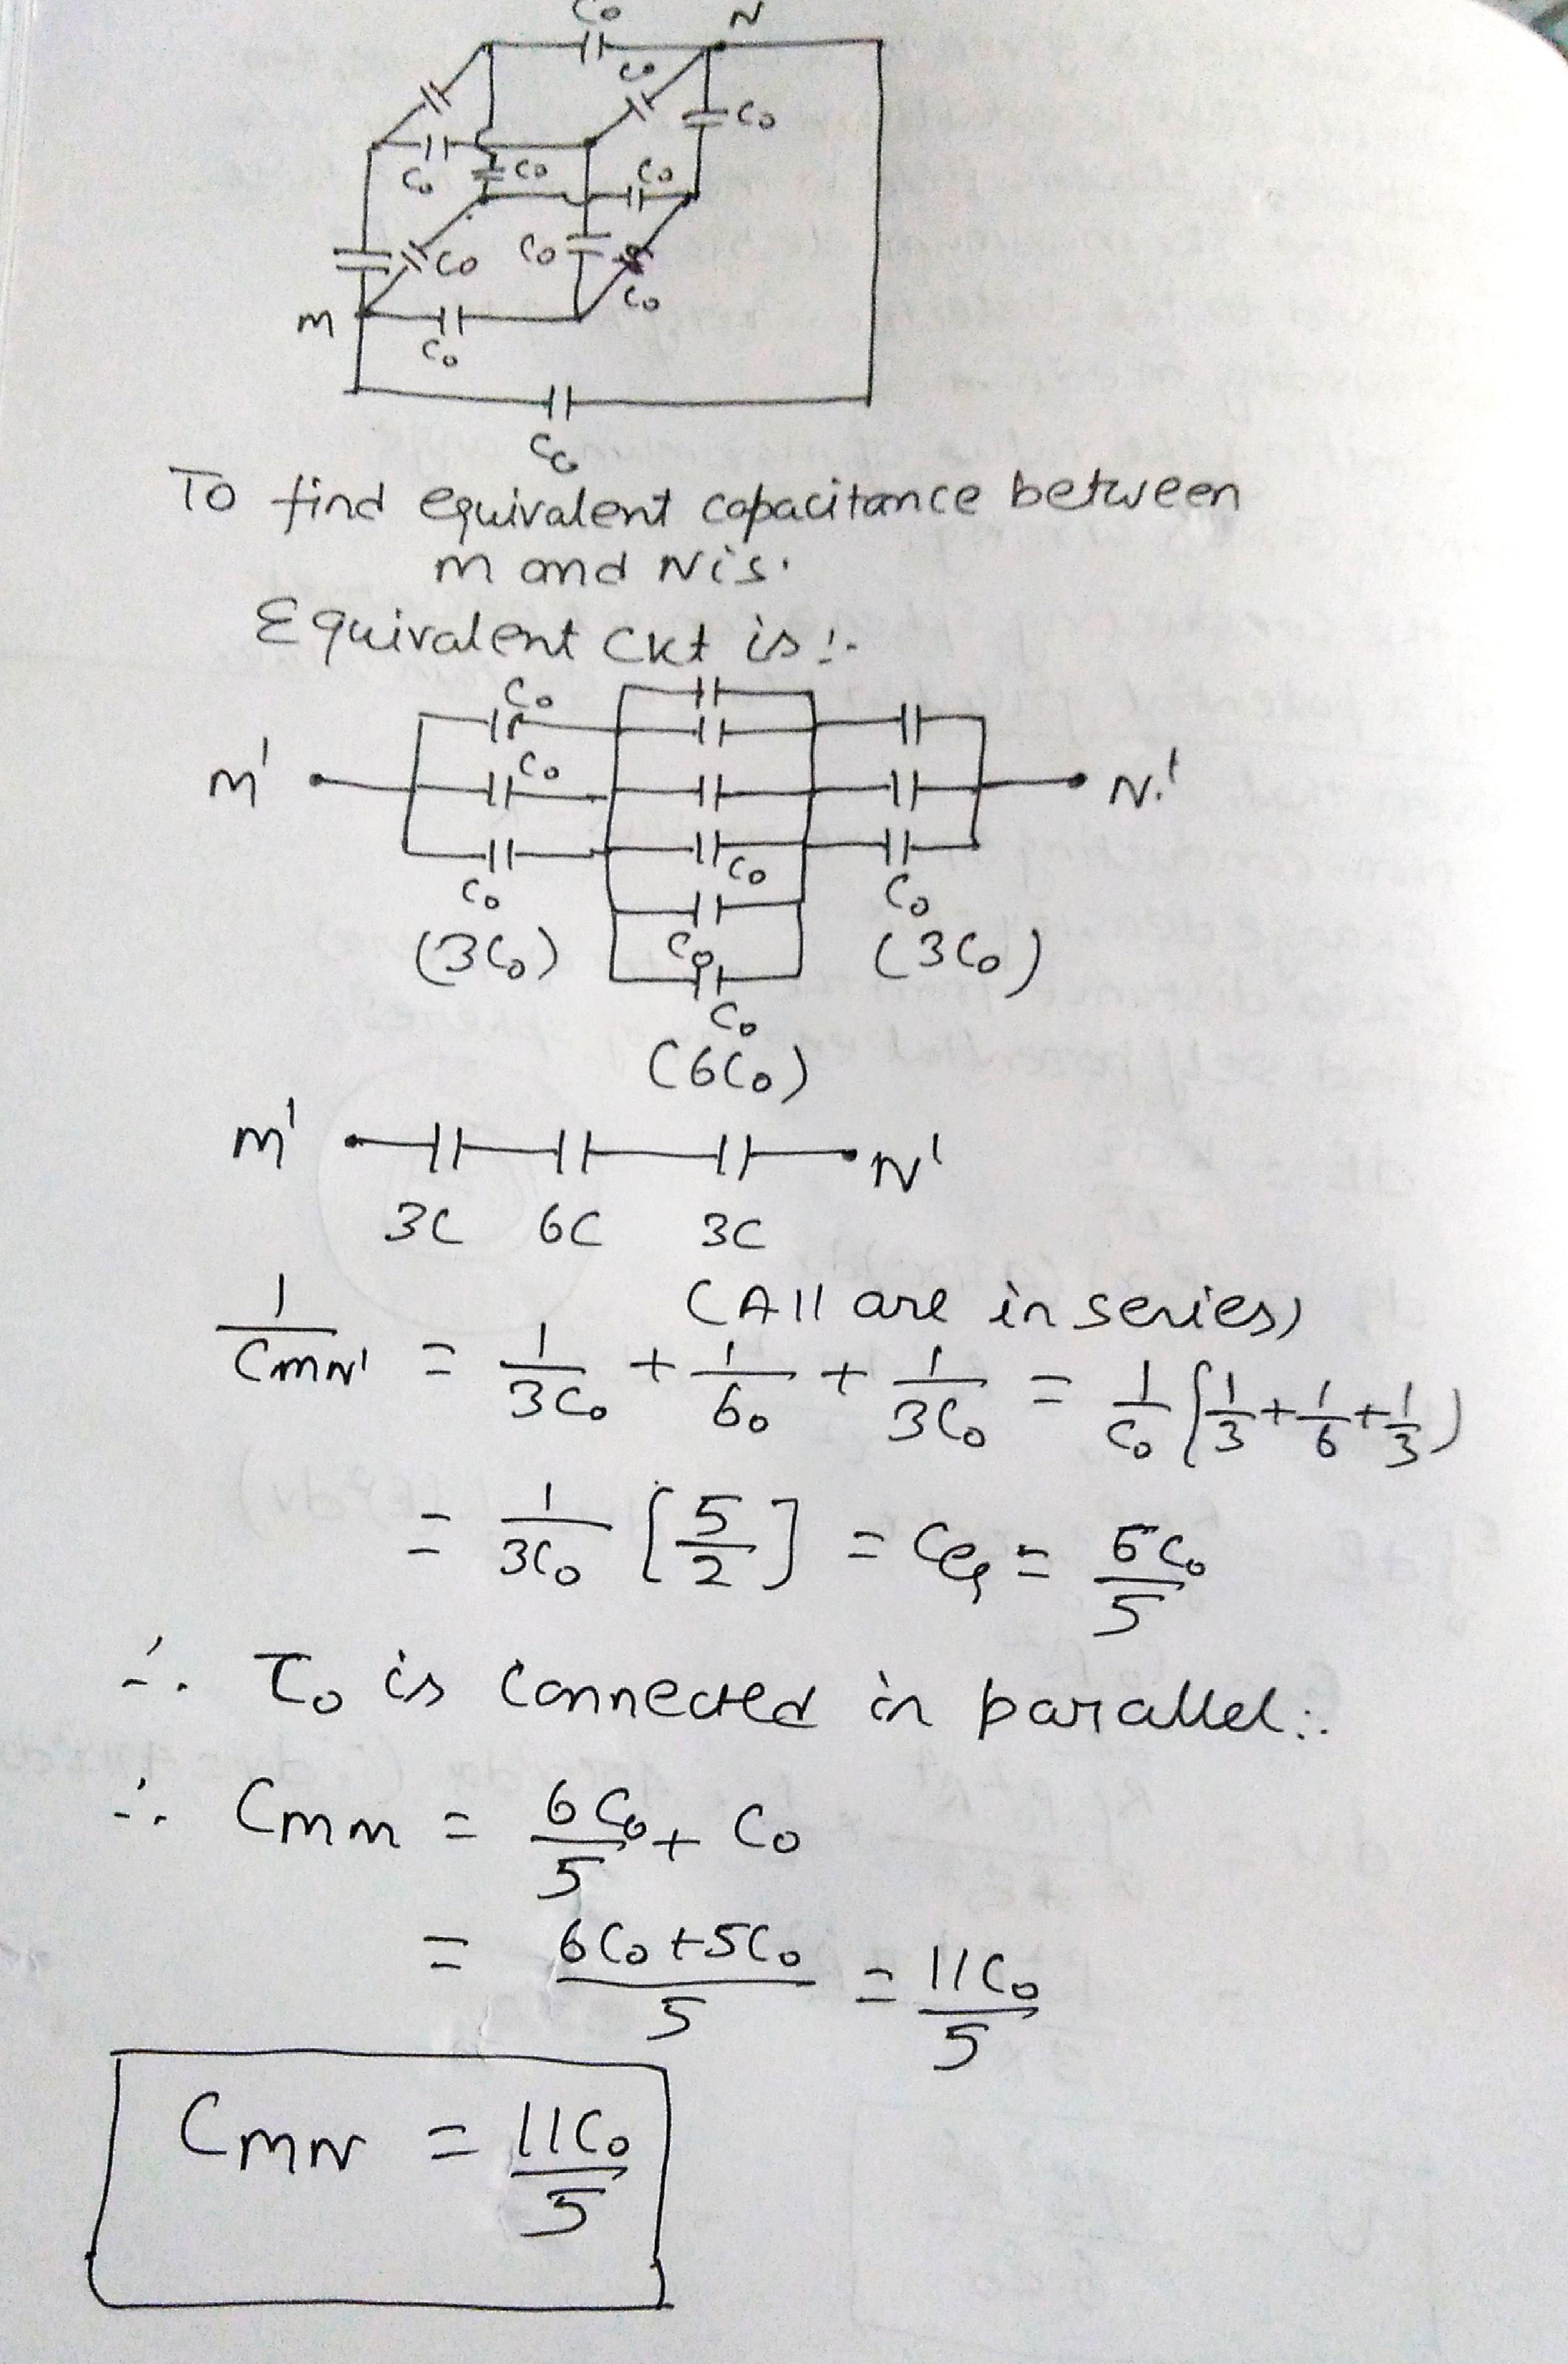 Co N
Co
Co
Co Co Co
Co Co
Co
M
Co
Co
To find equivalent capacitance between
M and N is.
Equivalent Ckt is :-
Co
M' Co N.'
Co Co Co
(3Co) Co (3Co)
Co
(6Co)
M' N'
3C 6C 3C
(All are in series)
1/CMN' = 1/3Co + 1/6o + 1/3Co = 1/Co (1/3 + 1/6 + 1/3)
= 1/3Co [5/2] = Ceq = 6Co/5
∴ Co is connected in parallel ∴
∴ Cmn = 6Co/5 + Co
= 6Co+5Co/5 = 11Co/5
CMN = 11Co/5